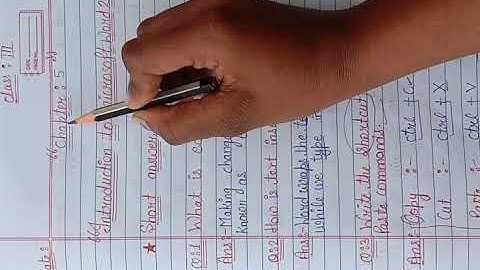 Class : III
Chapter : 5
Introduction to Microsoft Word 2
★ Short answer
Q:1 What is
Ans:- Making chang
known as
Q:2 How is text is
Ans:- Word wraps the te
while we type in
Q:3 Write the shortcut
Paste commands.
Ans:- Copy :- ctrl + C
Cut :- ctrl + X
Paste :- ctrl + V